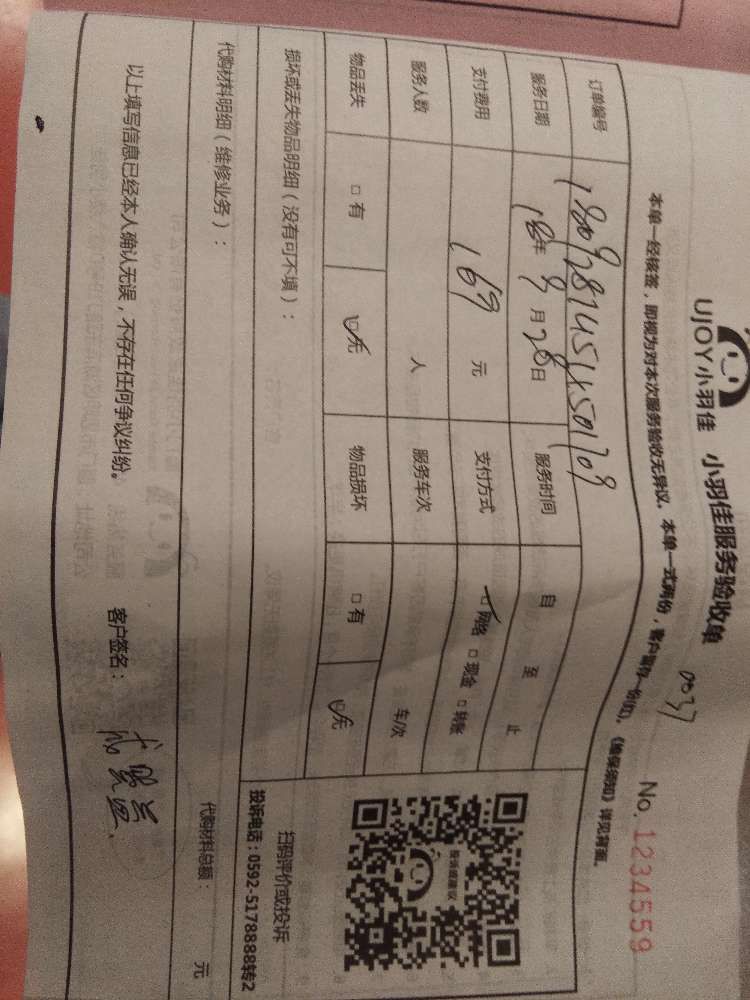 UJOY小羽佳 小羽佳服务验收单
0037 No. 1234559
本单一经核签，即视为对本次服务验收无异议。本单一式两份，客户留存一份(页)，《维保须知》详见背面。
订单编号
服务日期 18年 9月 28日 服务时间 自 至 止
支付费用 169 元 支付方式 ☑网络 □现金 □转账
服务人数 人 服务车次 车/次
物品丢失 □有 ☑无 物品损坏 □有 ☑无
损坏或丢失物品明细（没有可不填）：
投诉或建议
扫码评价或投诉
投诉电话：0592-5178888转2
代购材料明细（维修业务）： 代购材料总额： 元
以上填写信息已经本人确认无误，不存在任何争议纠纷。 客户签名：